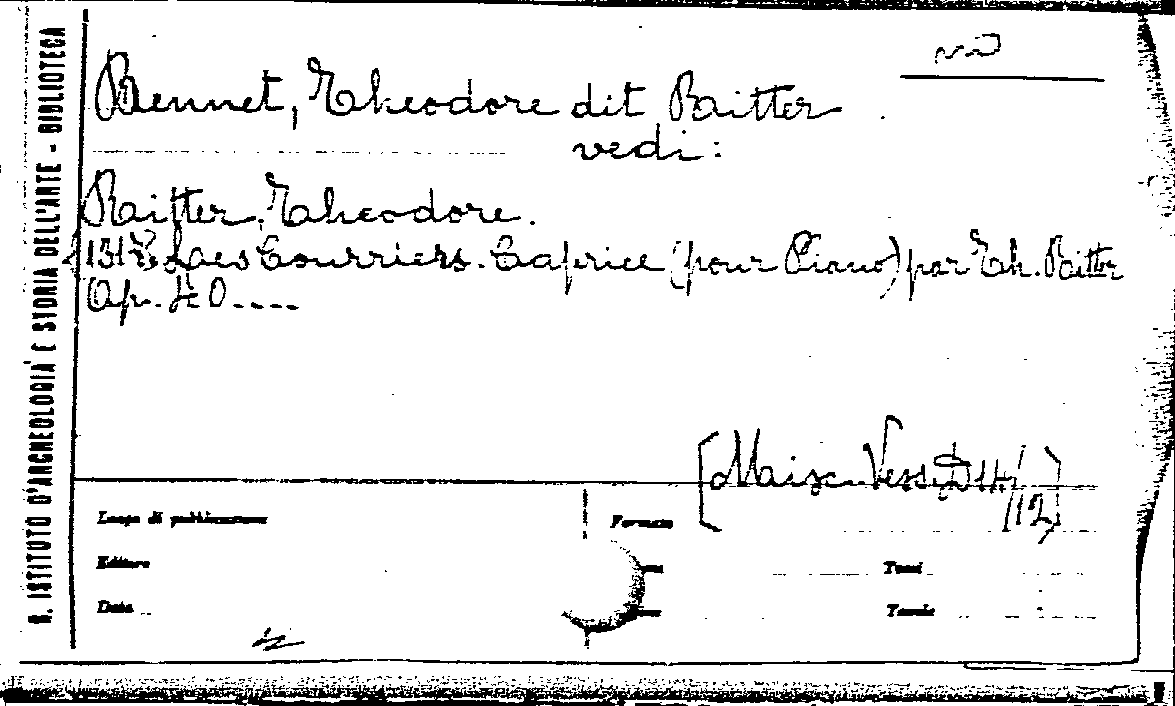 R. ISTITUTO D'ARCHEOLOGIA E STORIA DELL'ARTE - BIBLIOTECA
Bennet, Theodore dit Ritter
vedi:
Ritter, Theodore.
Les Courriers. Caprice (pour Piano) par Th. Ritter
Op. 40....
[Misc. Vess. D 14/12]
Luogo di pubblicazione
Formato
Editore
Tomi
Data
Tavole